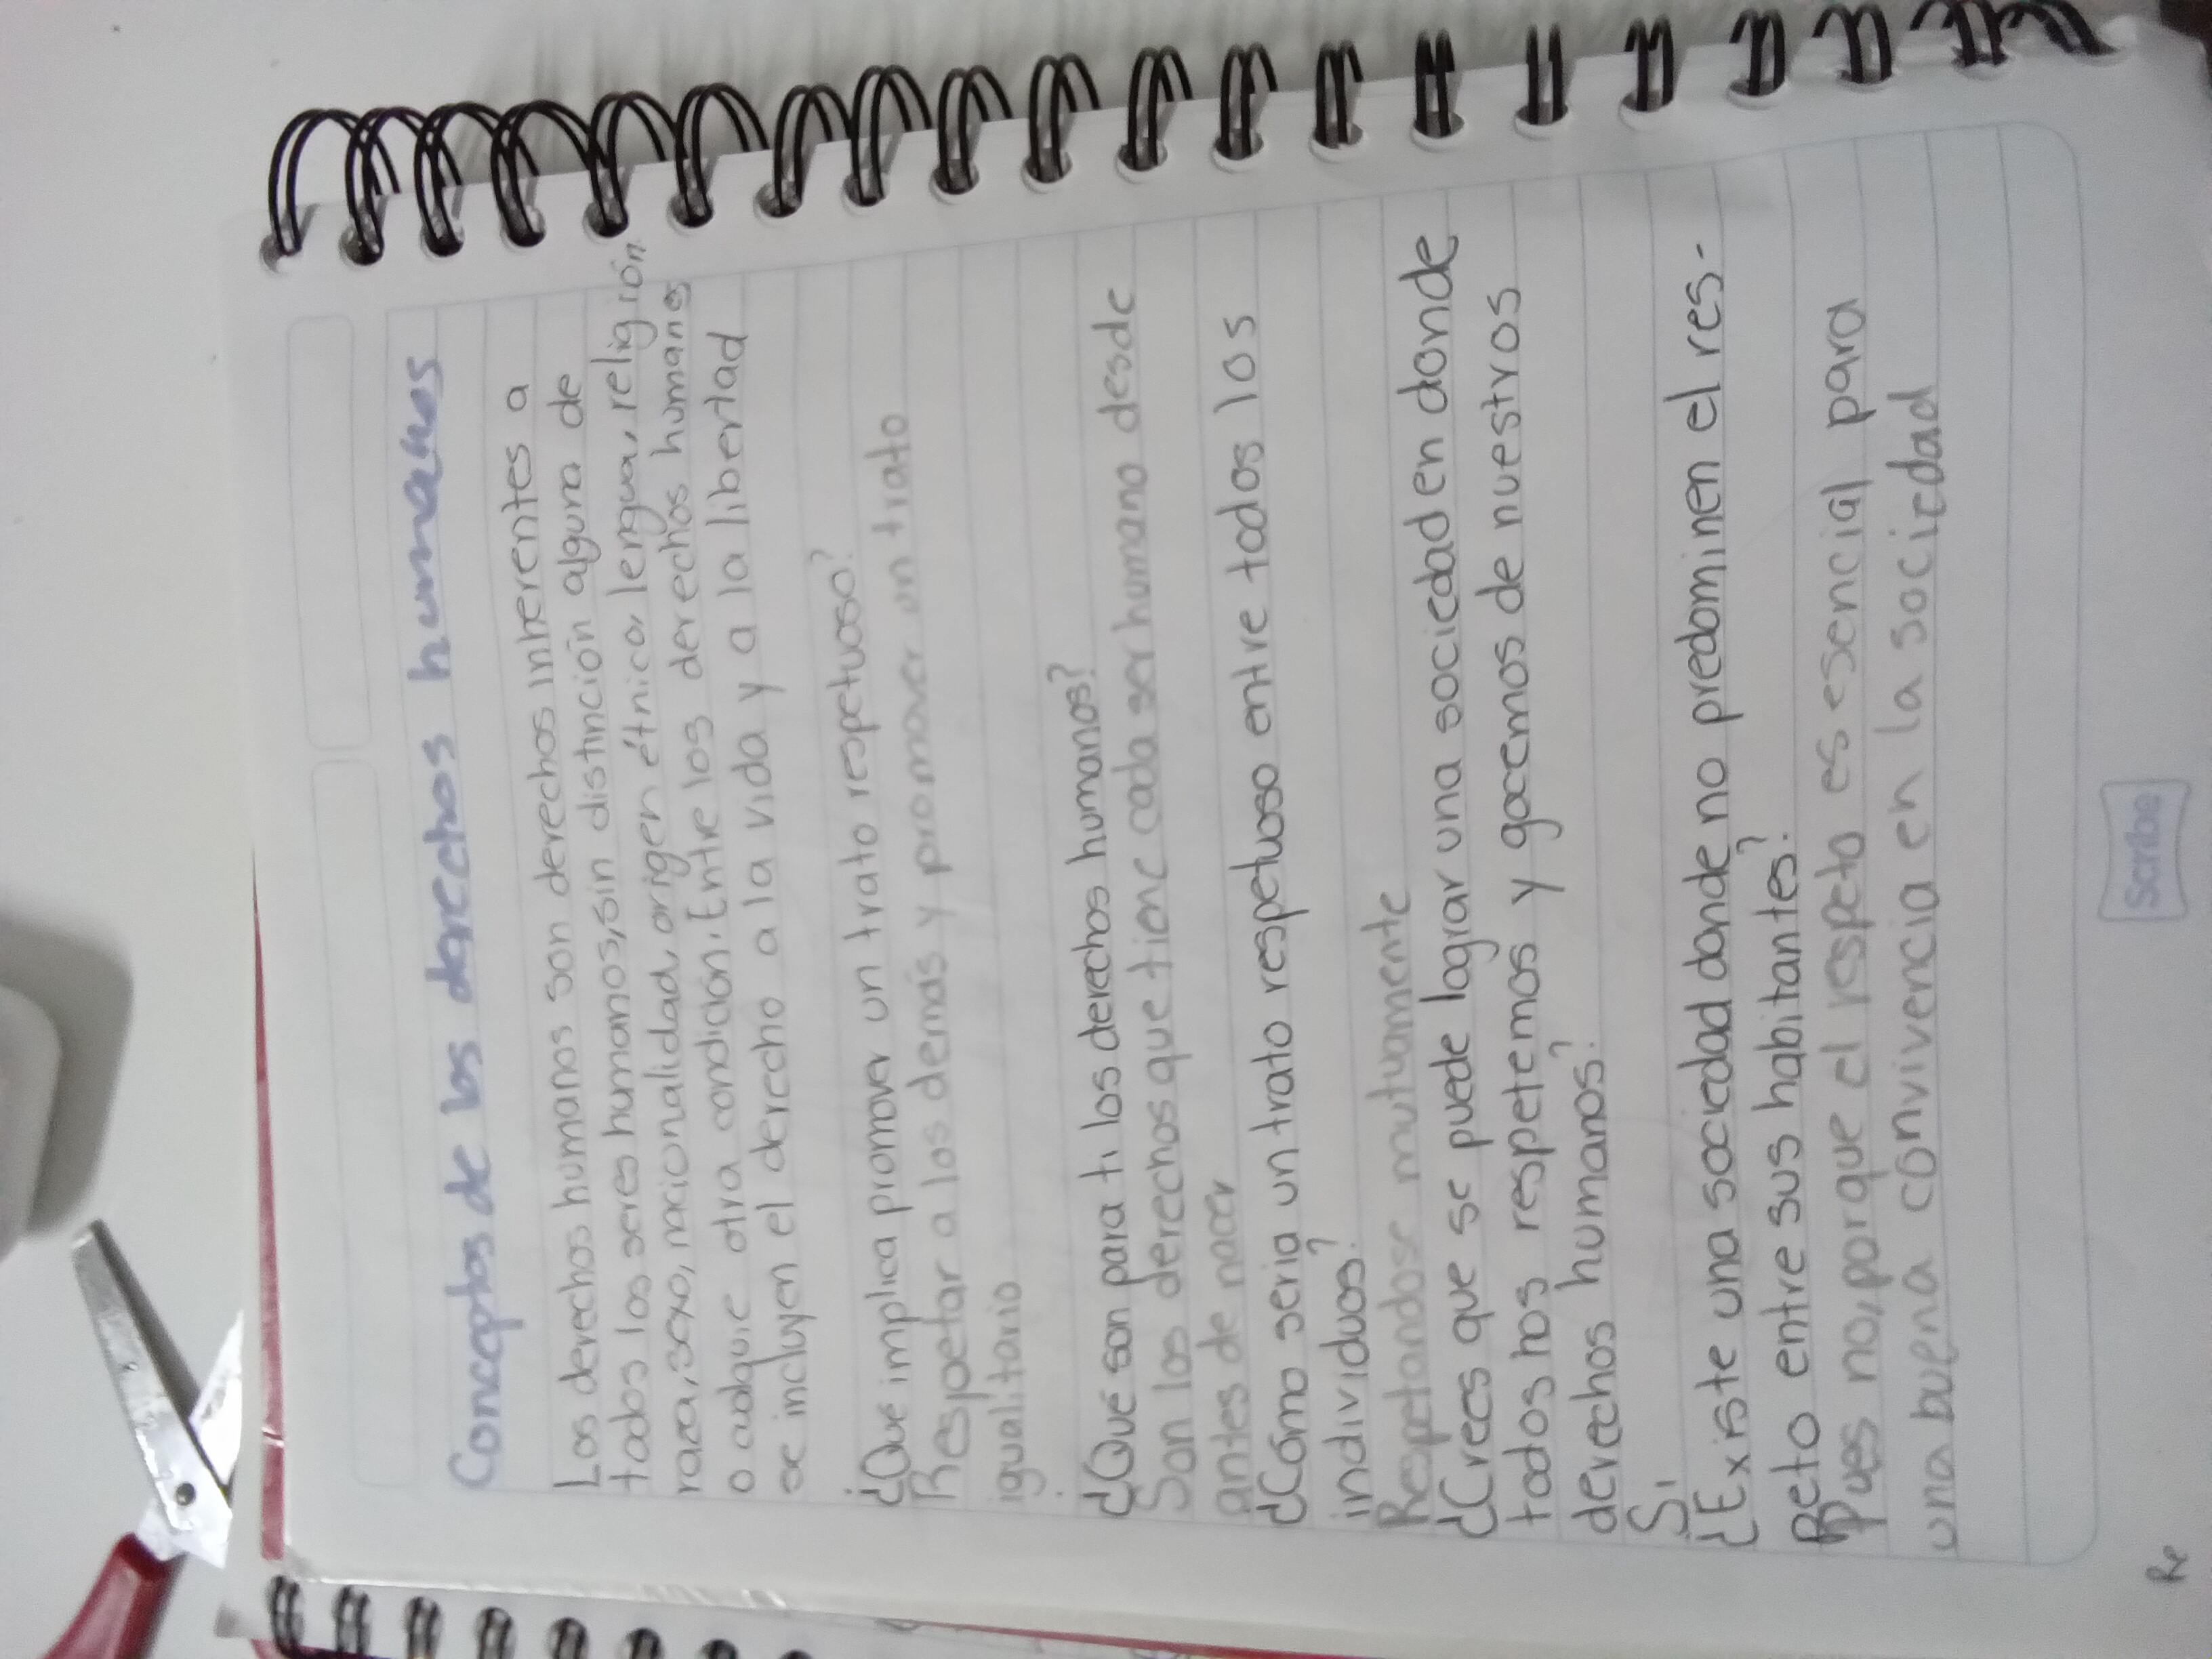 Conceptos de los derechos humanos
Los derechos humanos son derechos inherentes a
todos los seres humanos, sin distinción alguna de
raza, sexo, nacionalidad, origen étnico, lengua, religión
o cualquie otra condición. Entre los derechos humanos
se incluyen el derecho a la vida y a la libertad
¿Qué implica promover un trato respetuoso?
Respetar a los demás y promover un trato
igualitario
¿Qué son para ti los derechos humanos?
Son los derechos que tiene cada ser humano desde
antes de nacer
¿Cómo seria un trato respetuoso entre todos los
individuos?
Respetandose mutuamente
¿Crees que se puede lograr una sociedad en donde
todos nos respetemos y gocemos de nuestros
derechos humanos?
Si
¿Existe una sociedad donde no predominen el res-
peto entre sus habitantes?
Pues no, porque el respeto es esencial para
una buena convivencia en la sociedad
Scribe
Re